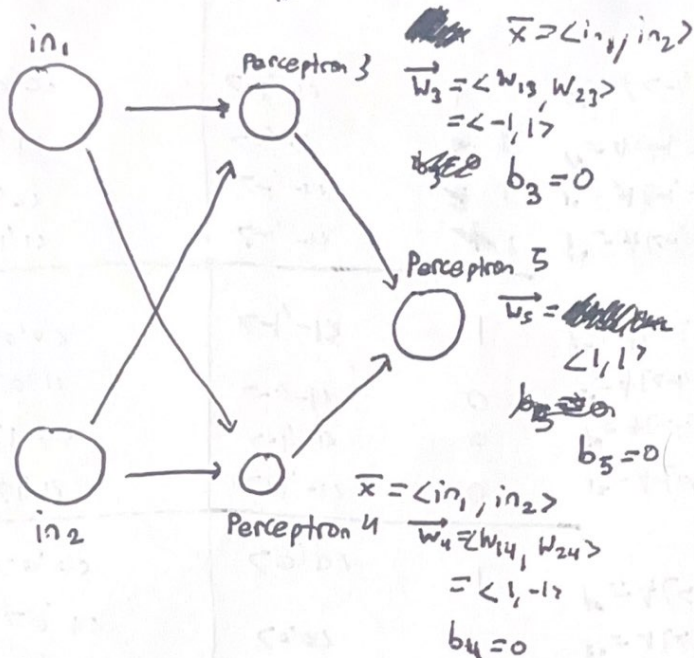 in₁
Perceptron 3
x̄ = <in₁, in₂>
w₃ = <w₁₃, w₂₃>
= <-1, 1>
b₃ = 0
Perceptron 5
w₅ =
<1, 1>
b₅ = 0
in₂
Perceptron 4
x̄ = <in₁, in₂>
w₄ = <w₁₄, w₂₄>
= <1, -1>
b₄ = 0